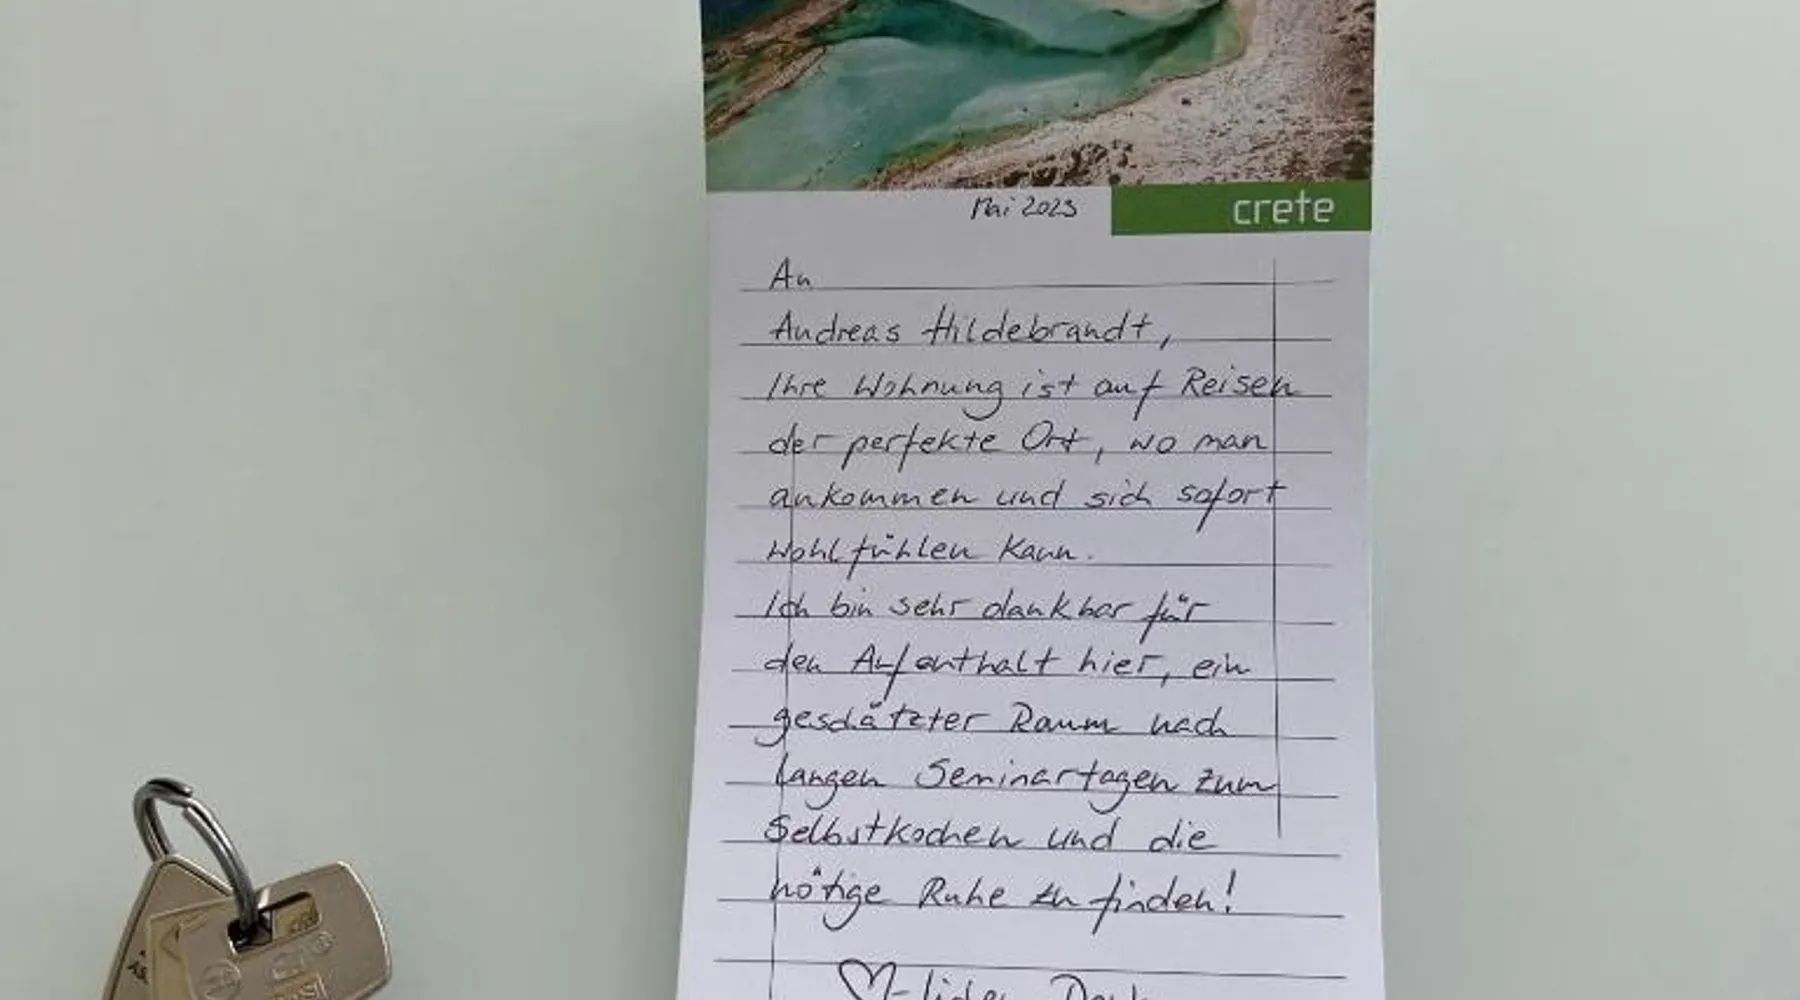 Mai 2023
crete
An
Andreas Hildebrandt,
Ihre Wohnung ist auf Reisen
der perfekte Ort, wo man
ankommen und sich sofort
wohlfühlen kann.
Ich bin sehr dankbar für
den Aufenthalt hier, ein
geschätzter Raum nach
langen Seminartagen zum
Selbstkochen und die
nötige Ruhe zu finden!
♡-lichen Dank